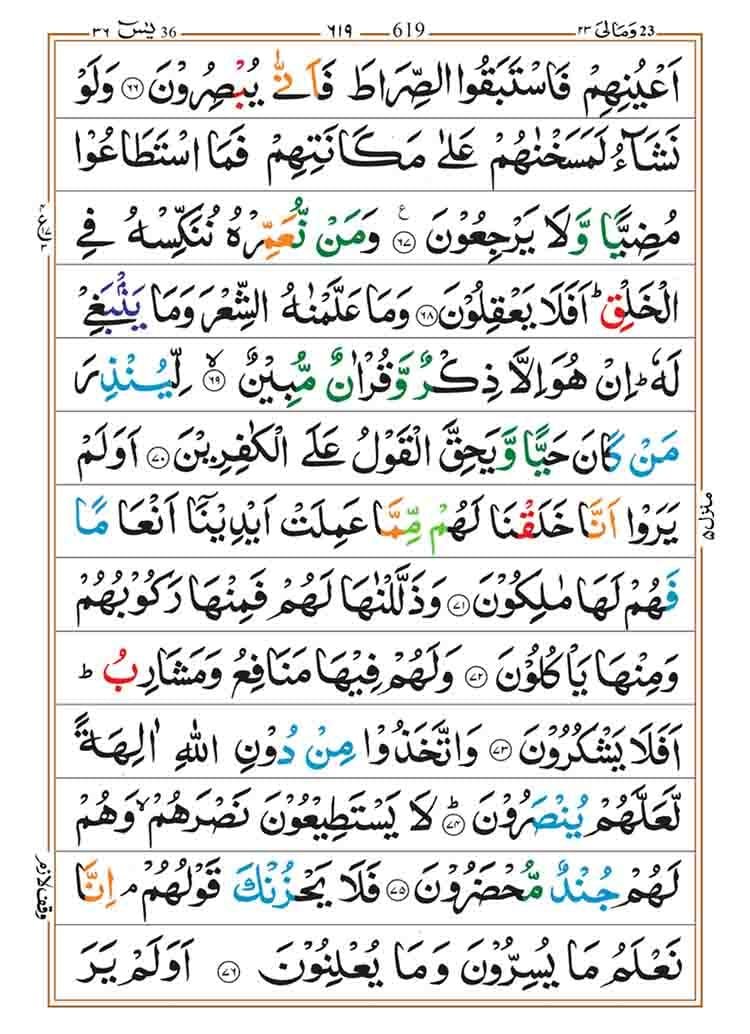 36 يٰسٓ ٣٦ ٦١٩ 619 23 وَمَالِىَ ٢٣
اَعْيُنِهِمْ فَاسْتَبَقُوا الصِّرَاطَ فَاَنّٰى يُبْصِرُوْنَ ﴿٦٦﴾ وَلَوْ
نَشَآءُ لَمَسَخْنٰهُمْ عَلٰى مَكَانَتِهِمْ فَمَا اسْتَطَاعُوْا
مُضِيًّا وَّلَا يَرْجِعُوْنَ ﴿٦٧﴾ ع وَمَنْ نُّعَمِّرْهُ نُنَكِّسْهُ فِى
الْخَلْقِ ؕ اَفَلَا يَعْقِلُوْنَ ﴿٦٨﴾ وَمَا عَلَّمْنٰهُ الشِّعْرَ وَمَا يَنْۢبَغِىْ
لَهٗ ؕ اِنْ هُوَ اِلَّا ذِكْرٌ وَّقُرْاٰنٌ مُّبِيْنٌ ﴿٦٩﴾ ۙ لِّيُنْذِرَ
مَنْ كَانَ حَيًّا وَّيَحِقَّ الْقَوْلُ عَلَى الْكٰفِرِيْنَ ﴿٧٠﴾ اَوَلَمْ
يَرَوْا اَنَّا خَلَقْنَا لَهُمْ مِّمَّا عَمِلَتْ اَيْدِيْنَاۤ اَنْعَامًا
فَهُمْ لَهَا مٰلِكُوْنَ ﴿٧١﴾ وَذَلَّلْنٰهَا لَهُمْ فَمِنْهَا رَكُوْبُهُمْ
وَمِنْهَا يَاْكُلُوْنَ ﴿٧٢﴾ وَلَهُمْ فِيْهَا مَنَافِعُ وَمَشَارِبُ ؕ
اَفَلَا يَشْكُرُوْنَ ﴿٧٣﴾ وَاتَّخَذُوْا مِنْ دُوْنِ اللّٰهِ اٰلِهَةً
لَّعَلَّهُمْ يُنْصَرُوْنَ ﴿٧٤﴾ ؕ لَا يَسْتَطِيْعُوْنَ نَصْرَهُمْ ۙ وَهُمْ
لَهُمْ جُنْدٌ مُّحْضَرُوْنَ ﴿٧٥﴾ فَلَا يَحْزُنْكَ قَوْلُهُمْ ۘ اِنَّا
نَعْلَمُ مَا يُسِرُّوْنَ وَمَا يُعْلِنُوْنَ ﴿٧٦﴾ اَوَلَمْ يَرَ
منزل ٥
وقف لازم